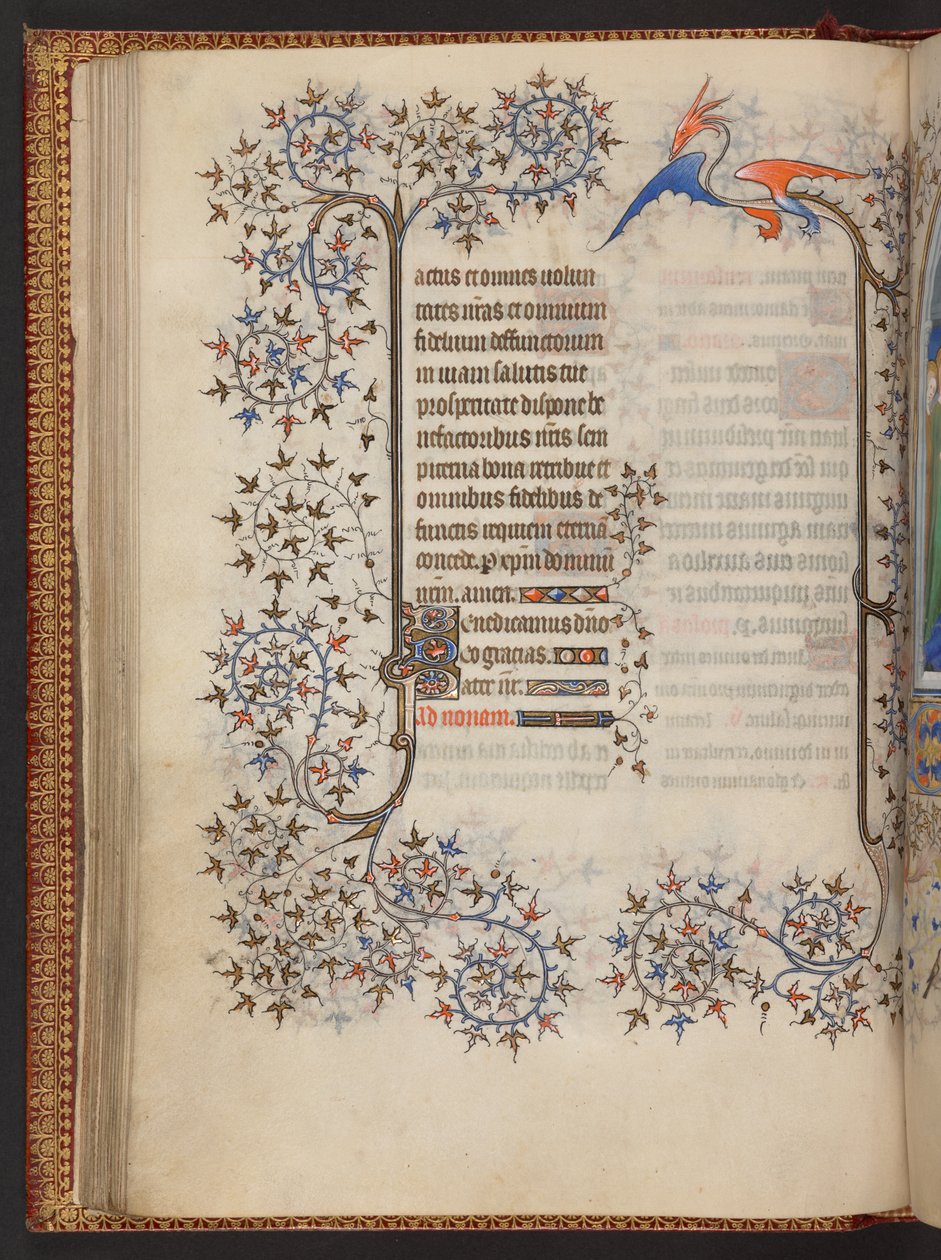 actus et omnes uolun
tates nr̃as et omnium
fidelium deffunctorum
in uiam salutis tue
prosperitate dispone be
nefactoribus nr̃is sem
piterna bona retribue et
omnibus fidelibus de
functis requiem eternã
concede. p xpm dominũ
nr̃m. amen.
Benedicamus dño
Deo gracias.
Pater nr̃.
Ad nonam.